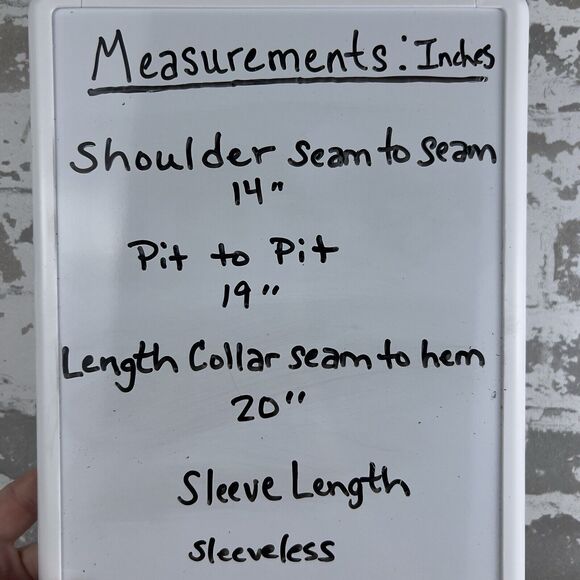 Measurements: Inches
Shoulder seam to seam
14"
Pit to Pit
19"
Length Collar seam to hem
20"
Sleeve Length
sleeveless